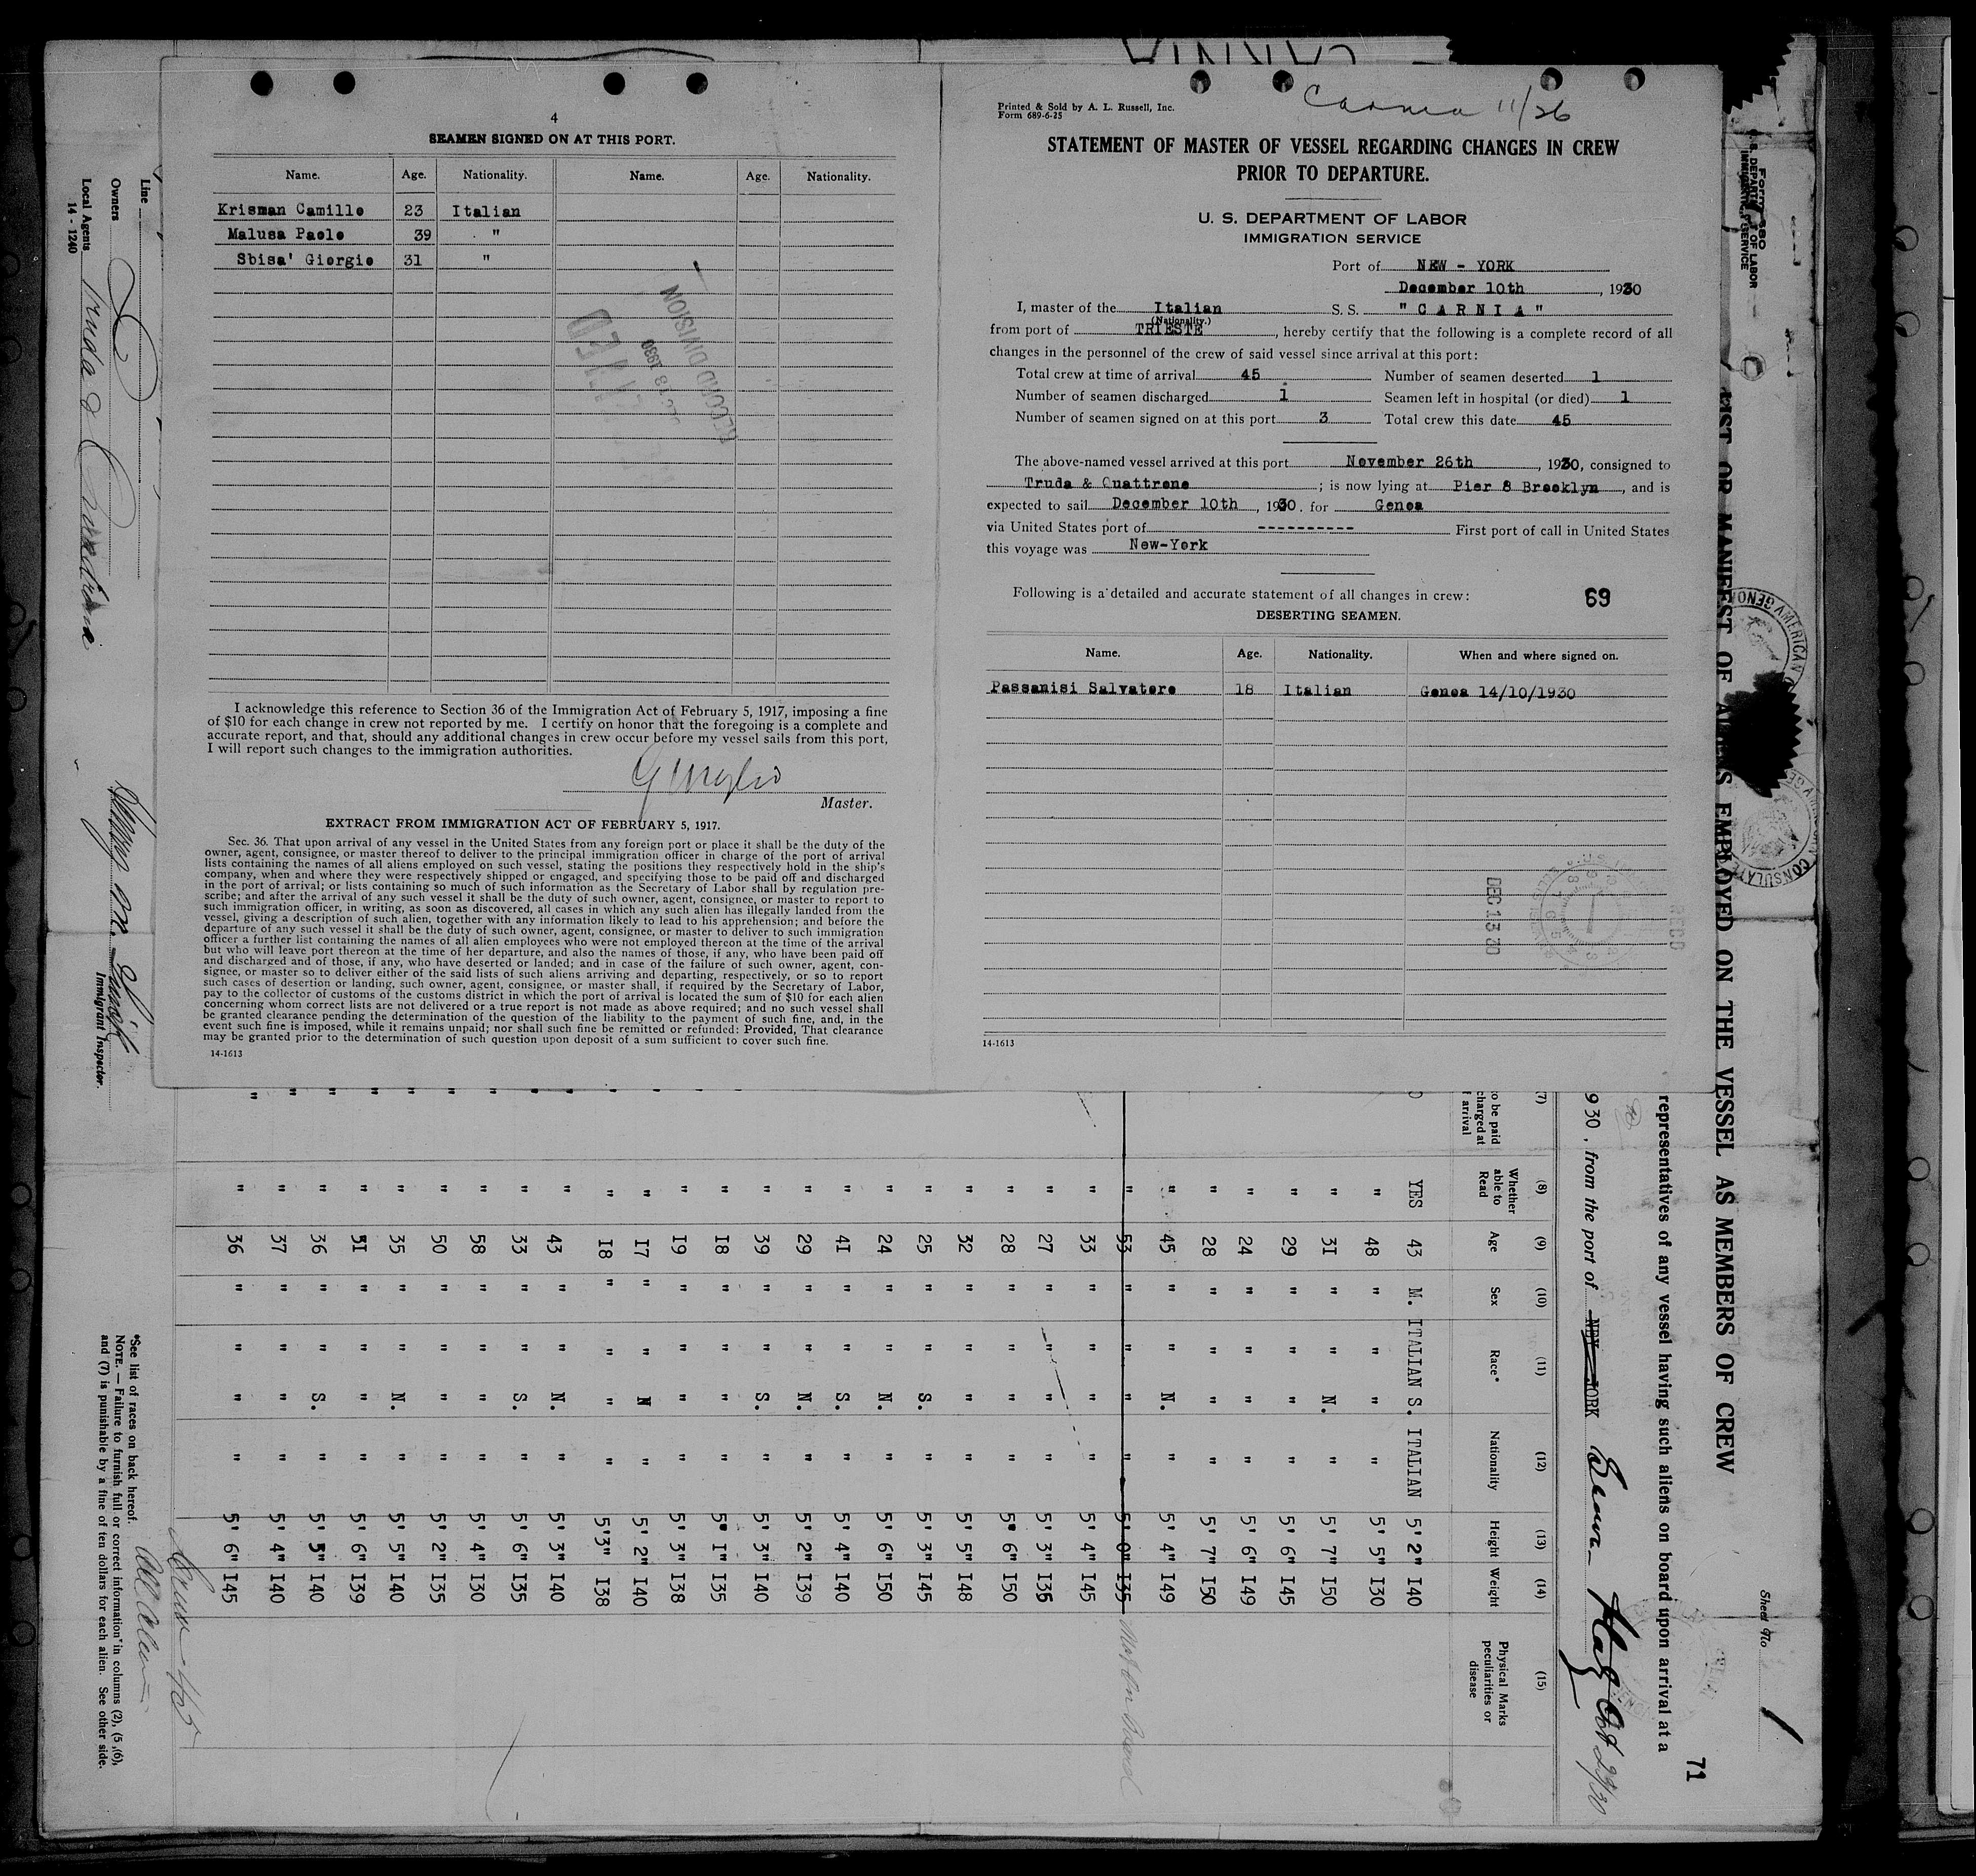 4
SEAMEN SIGNED ON AT THIS PORT.
Name. Age. Nationality. Name. Age. Nationality.
Krisman Camillo 23 Italian
Malusa Paolo 39 "
Sbisa' Giorgio 31 "
RECORD DIVISION
DEC 13 1930
I acknowledge this reference to Section 36 of the Immigration Act of February 5, 1917, imposing a fine
of $10 for each change in crew not reported by me. I certify on honor that the foregoing is a complete and
accurate report, and that, should any additional changes in crew occur before my vessel sails from this port,
I will report such changes to the immigration authorities.
Master.
EXTRACT FROM IMMIGRATION ACT OF FEBRUARY 5, 1917.
Sec. 36. That upon arrival of any vessel in the United States from any foreign port or place it shall be the duty of the
owner, agent, consignee, or master thereof to deliver to the principal immigration officer in charge of the port of arrival
lists containing the names of all aliens employed on such vessel, stating the positions they respectively hold in the ship's
company, when and where they were respectively shipped or engaged, and specifying those to be paid off and discharged
in the port of arrival; or lists containing so much of such information as the Secretary of Labor shall by regulation pre-
scribe; and after the arrival of any such vessel it shall be the duty of such owner, agent, consignee, or master to report to
such immigration officer, in writing, as soon as discovered, all cases in which any such alien has illegally landed from the
vessel, giving a description of such alien, together with any information likely to lead to his apprehension; and before the
departure of any such vessel it shall be the duty of such owner, agent, consignee, or master to deliver to such immigration
officer a further list containing the names of all alien employees who were not employed thereon at the time of the arrival
but who will leave port thereon at the time of her departure, and also the names of those, if any, who have been paid off
and discharged and of those, if any, who have deserted or landed; and in case of the failure of such owner, agent, con-
signee, or master so to deliver either of the said lists of such aliens arriving and departing, respectively, or so to report
such cases of desertion or landing, such owner, agent, consignee, or master shall, if required by the Secretary of Labor,
pay to the collector of customs of the customs district in which the port of arrival is located the sum of $10 for each alien
concerning whom correct lists are not delivered or a true report is not made as above required; and no such vessel shall
be granted clearance pending the determination of the question of the liability to the payment of such fine, and, in the
event such fine is imposed, while it remains unpaid; nor shall such fine be remitted or refunded: Provided, That clearance
may be granted prior to the determination of such question upon deposit of a sum sufficient to cover such fine.
14-1613
Printed & Sold by A. L. Russell, Inc.
Form 689-6-25
Carnia 11/26
STATEMENT OF MASTER OF VESSEL REGARDING CHANGES IN CREW
PRIOR TO DEPARTURE.
U. S. DEPARTMENT OF LABOR
IMMIGRATION SERVICE
Port of NEW - YORK
December 10th, 1930
I, master of the Italian S. S. "CARNIA"
(Nationality.)
from port of TRIESTE, hereby certify that the following is a complete record of all
changes in the personnel of the crew of said vessel since arrival at this port:
Total crew at time of arrival 45 Number of seamen deserted 1
Number of seamen discharged 1 Seamen left in hospital (or died) 1
Number of seamen signed on at this port 3 Total crew this date 45
The above-named vessel arrived at this port November 26th, 1930, consigned to
Truda & Quattrone; is now lying at Pier 8 Brooklyn, and is
expected to sail December 10th, 1930. for Genoa
via United States port of ---------- First port of call in United States
this voyage was New-York
Following is a detailed and accurate statement of all changes in crew: 69
DESERTING SEAMEN.
Name. Age. Nationality. When and where signed on.
Passanisi Salvatore 18 Italian Genoa 14/10/1930
DEC 13 30
RECD
14-1613
Sheet No 1
71
LIST OR MANIFEST OF ALIENS EMPLOYED ON THE VESSEL AS MEMBERS OF CREW
representatives of any vessel having such aliens on board upon arrival at a
930, from the port of NEW YORK Genoa
(7) (8) (9) (10) (11) (12) (13) (14) (15)
to be paid
charged at
f arrival
Whether able to Read
Age
Sex
Race*
Nationality
Height
Weight
Physical Marks peculiarities or disease
YES 43 M. ITALIAN S. ITALIAN 5' 2" I40
" 48 " " " " 5' 5" I30
" 3I " " N. " 5' 7" I50
" 29 " " " " 5' 6" I45
" 24 " " " " 5' 6" I49
" 28 " " " " 5' 7" I50
" 45 " " N. " 5' 4" I49
" 53 " " " " 5' 0" I35 Not on Board
" 33 " " " " 5' 4" I45
" 27 " " " " 5' 3" I36
" 28 " " " " 5" 6" I50
" 32 " " " " 5' 5" I48
" 25 " " S. " 5' 3" I45
" 24 " " N. " 5' 6" I50
" 4I " " S. " 5' 4" I40
" 29 " " N. " 5' 2" I39
" 39 " " S. " 5' 3" I40
" I8 " " " " 5" I" I35
" I9 " " " " 5' 3" I38
" I7 " " N " 5' 2" I40
" I8 " " " " 5'3" I38
" 43 " " N. " 5' 3" I40
" 33 " " S. " 5' 6" I35
" 58 " " " " 5' 4" I30
" 50 " " " " 5' 2" I35
" 35 " " N. " 5' 5" I40
" 5I " " " " 5' 6" I39
" 36 " " S. " 5' 5" I40
" 37 " " " " 5' 4" I40
" 36 " " " " 5' 6" I45
*See list of races on back hereof.
NOTE. — Failure to furnish full or correct information in columns (2), (5), (6),
and (7) is punishable by a fine of ten dollars for each alien. See other side.
Line
Owners
Local Agents
14 - 1240
Immigrant Inspector.